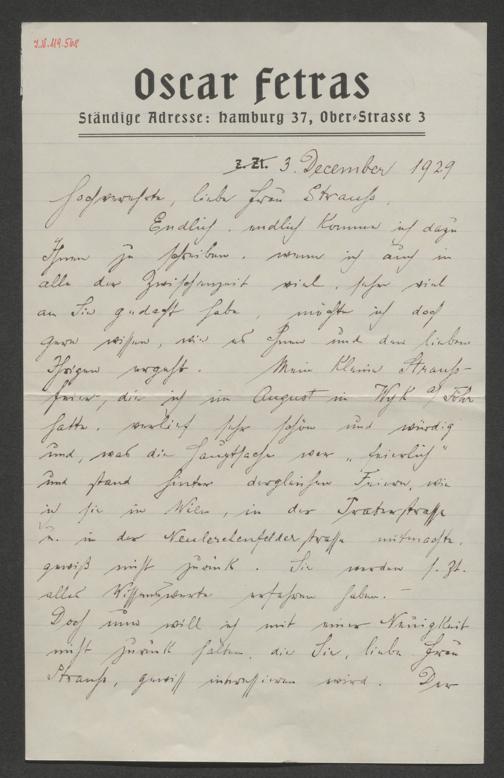 I.N. 119.568
Oscar Fetras
Ständige Adresse: Hamburg 37, Ober-Strasse 3
z. Zt. 3. December 1929
Hochverehrte, liebe Frau Strauss,
Endlich, endlich komme ich dazu
Ihnen zu schreiben, wenn ich auch in
all der Zwischenzeit viel, sehr viel
an Sie gedacht habe, möchte ich doch
gern wissen, wie es Ihnen und den lieben
Ihrigen ergeht. Mein kleine Strauss-
feier, die ich im August in Wyk a/ Föhr
hatte, verlief sehr schön und würdig
und, was die Hauptsache war „feierlich"
und stand hinter dergleichen Feiern, wie
ich sie in Wien, in der Praterstrasse
u. in der Neulerchenfelderstrasse mitmachte,
gewiß nicht zurück. Sie werden s. Zt.
alles Wissenswerte erfahren haben. –
Doch nun will ich mit einer Neuigkeit
nicht zurück halten, die Sie, liebe Frau
Strauss, gewiss interessieren wird. Der